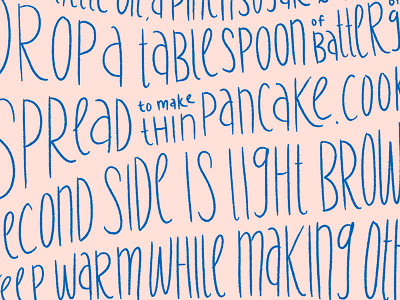 DROP a tablespoon of batter
SPREAD to make thin PANCAKE. COOK
SECOND SIDE IS light BROWN
keep WARM WHILE making